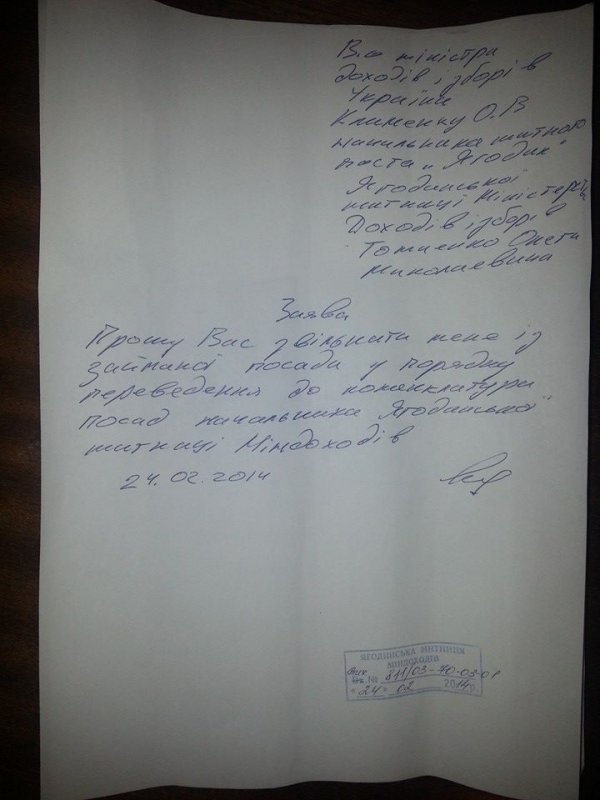 В.о міністра
доходів і зборів
України
Клименку О.В
начильника митного
поста „Ягодин"
Ягодинської
митниці Міністерств
Доходів і зборів
Томченко Олега
Миколаевича
Заява
Прошу Вас звільнити мене із
займаної посади у порядку
переведення до номенклатури
посад начальника Ягодинської
митниці Міндоходів
24.02.2014
ЯГОДИНСЬКА МИТНИЦЯ
МІНДОХОДІВ
Вх. № 811/03-70-03-01
"24" 02 2014р.